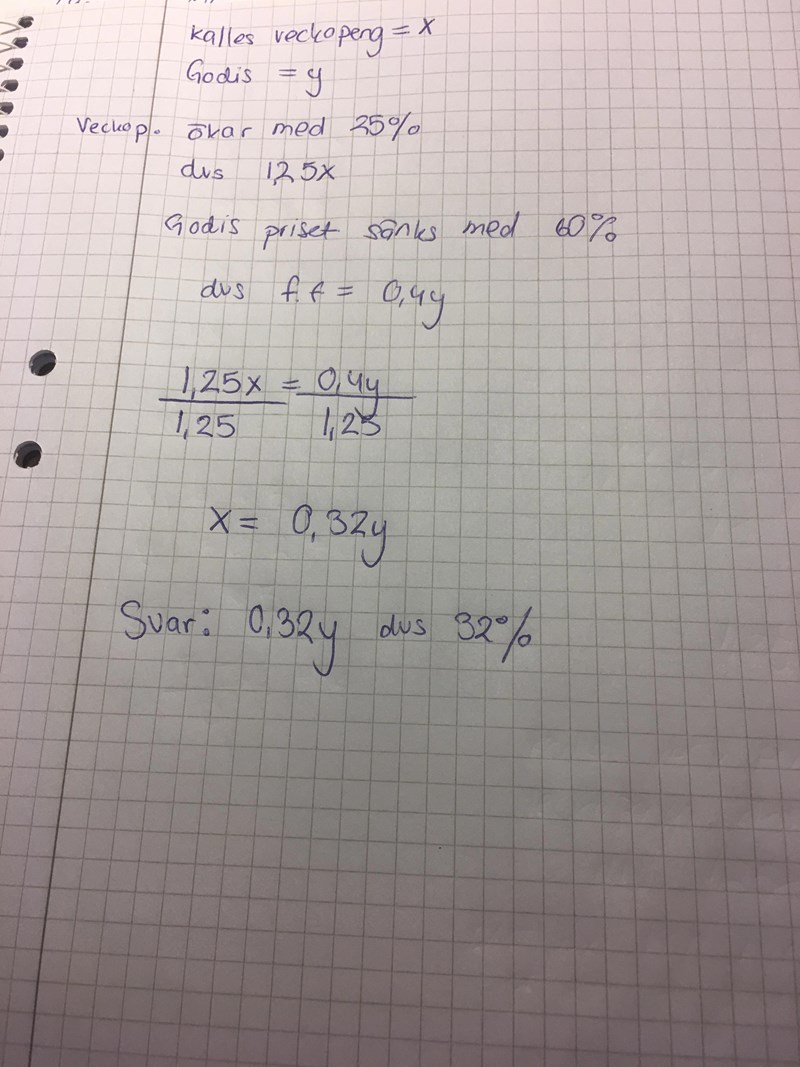 Kalles veckopeng = x
Godis = y
Veckop. ökar med 25%
dvs 1,25x
Godis priset sänks med 60%
dvs f.f = 0,4y
1,25x = 0,4y
1,25 1,25
x = 0,32y
Svar: 0,32y dvs 32%